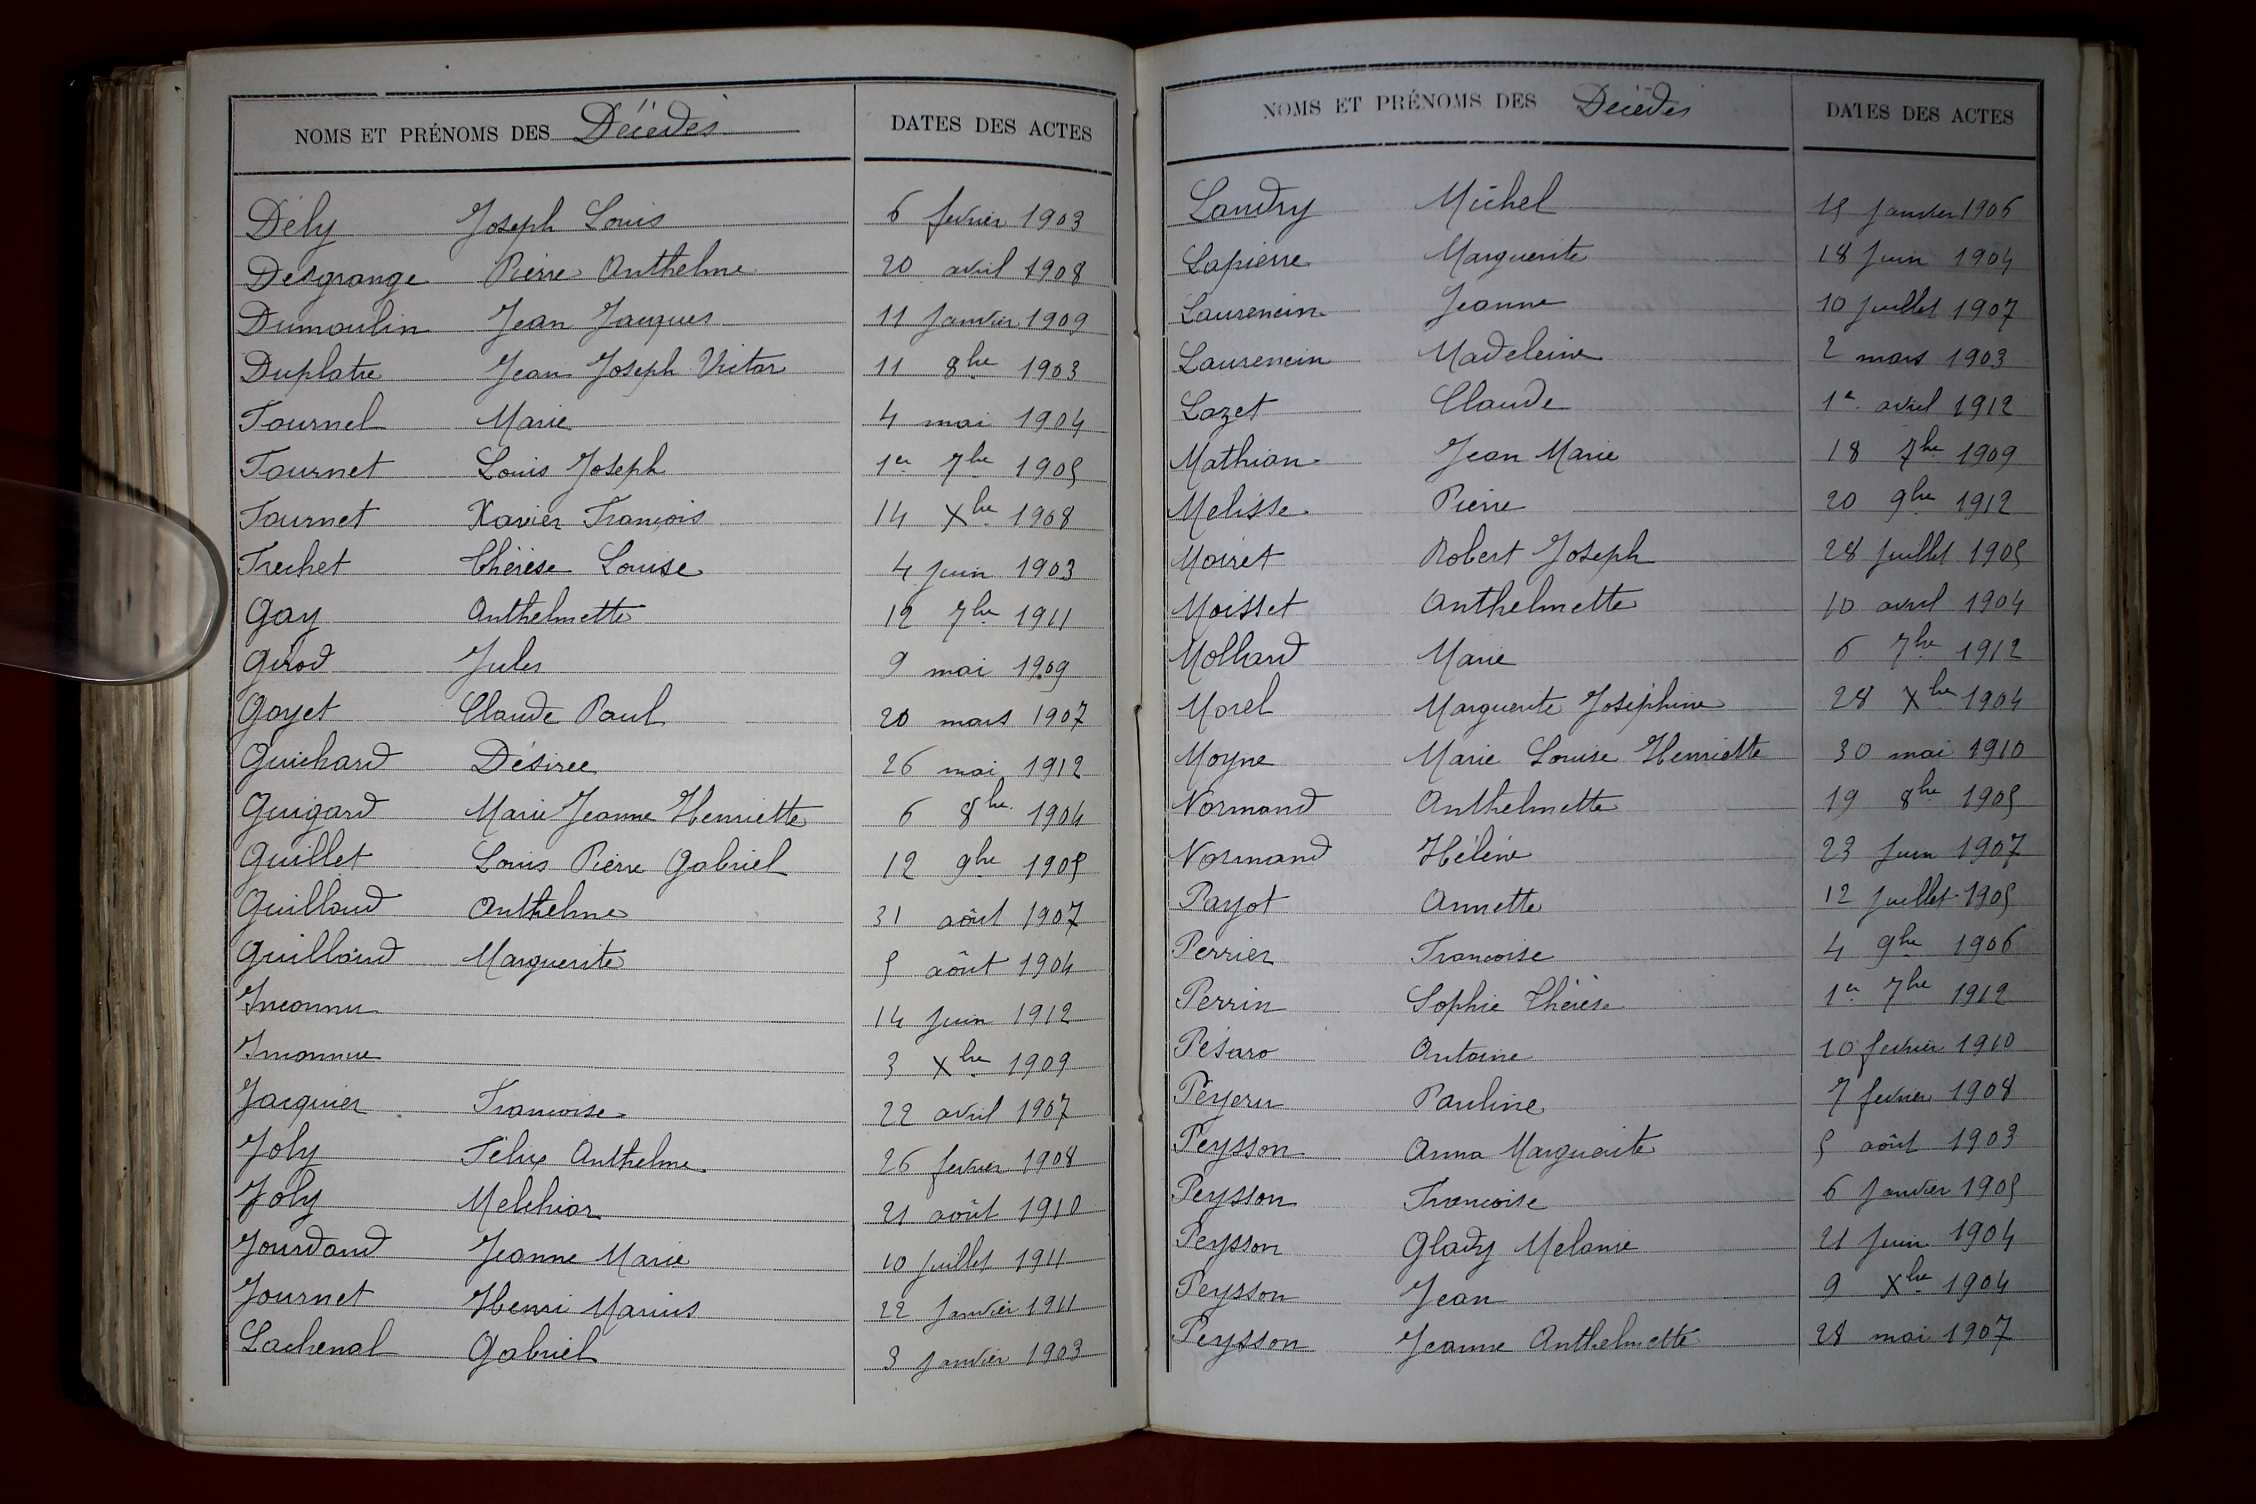 NOMS ET PRÉNOMS DES Décédés DATES DES ACTES
Dély Joseph Louis 6 fevrier 1903
Desgrange Pierre Anthelme 20 avril 1908
Dumoulin Jean Jacques 11 Janvier 1909
Duplatre Jean Joseph Victor 11 8bre 1903
Fournel Marie 4 mai 1904
Fournet Louis Joseph 1er 7bre 1905
Fournet Xavier François 14 Xbre 1908
Frechet Thérèse Louise 4 Juin 1903
Gay Anthelmette 12 7bre 1911
Girod Jules 9 mai 1909
Goyet Claude Paul 20 mars 1907
Guichard Désirée 26 mai 1912
Guigard Marie Jeanne Henriette 6 8bre 1904
Guillet Louis Pierre Gabriel 12 9bre 1905
Guilland Anthelme 31 août 1907
Guilland Marguerite 5 août 1904
Inconnu 14 Juin 1912
Inconnue 3 Xbre 1909
Jacquier Francoise 22 avril 1907
Joly Félix Anthelme 26 fevrier 1908
Joly Melchior 21 août 1910
Jourdand Jeanne Marie 10 Juillet 1911
Journet Henri Marius 22 Janvier 1911
Lachenal Gabriel 3 Janvier 1903
NOMS ET PRÉNOMS DES Décédés DATES DES ACTES
Landry Michel 15 Janvier 1906
Lapierre Marguerite 18 Juin 1904
Laurencin Jeanne 10 Juillet 1907
Laurencin Madeleine 2 mars 1903
Lazet Claude 1er avril 1912
Mathian Jean Marie 18 7bre 1909
Melisse Pierre 20 9bre 1912
Moiret Robert Joseph 28 Juillet 1905
Moisset Anthelmette 10 avril 1904
Mollard Marie 6 7bre 1912
Morel Marguerite Joséphine 28 Xbre 1904
Moyne Marie Louise Henriette 30 mai 1910
Normand Anthelmette 19 8bre 1905
Normand Hélène 23 Juin 1907
Payot Annette 12 Juillet 1905
Perrier Francoise 4 9bre 1906
Perrin Sophie Thérèse 1er 7bre 1912
Pésaro Antoine 10 fevrier 1910
Péyeru Pauline 7 fevrier 1908
Peysson Anna Marguerite 5 août 1903
Peysson Francoise 6 Janvier 1905
Peysson Glady Melanie 21 Juin 1904
Peysson Jean 9 Xbre 1904
Peysson Jeanne Anthelmette 28 mai 1907